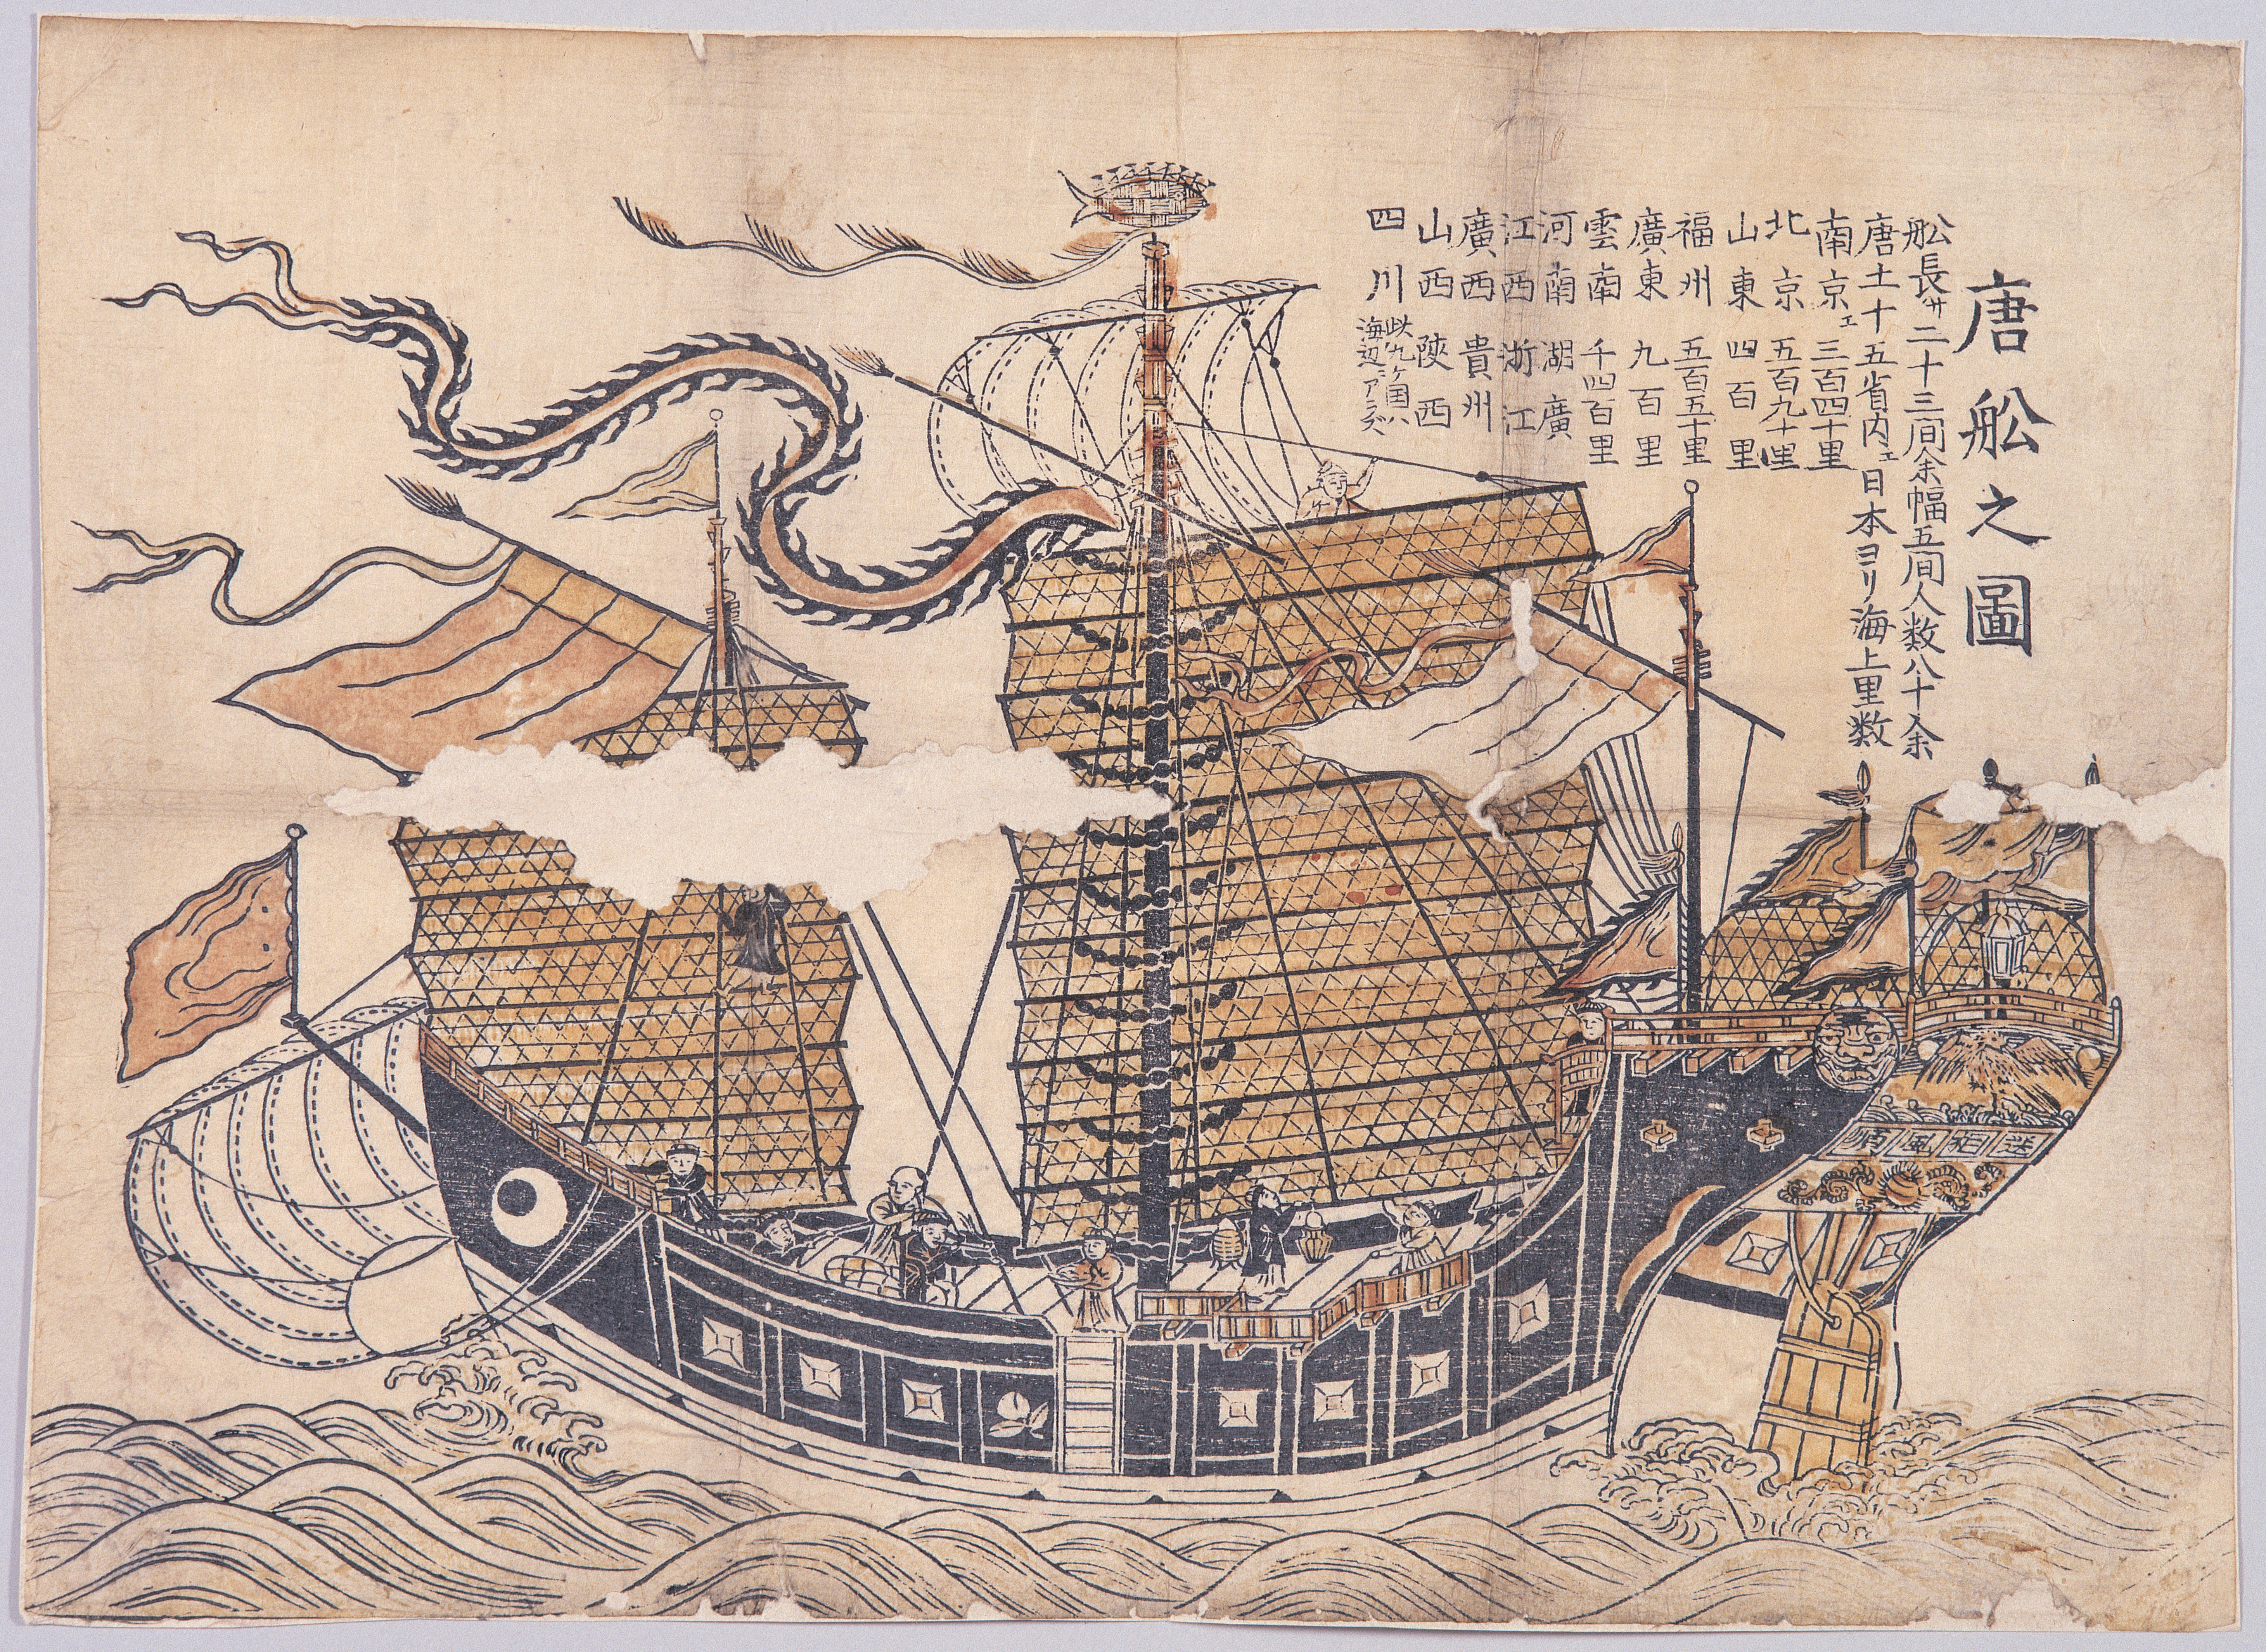 唐舩之圖
舩長サ二十三间余幅五间人数八十余
唐土十五省内エ日本ヨリ海上里数
南京エ三百四十里
北京 五百九十里
山東 四百里
福州 五百五十里
廣東 九百里
雲南 千四百里
河南 湖廣
江西 浙江
廣西 貴州
山西 陝西
四川 此九ケ国ハ
海辺アラズ
順風相送